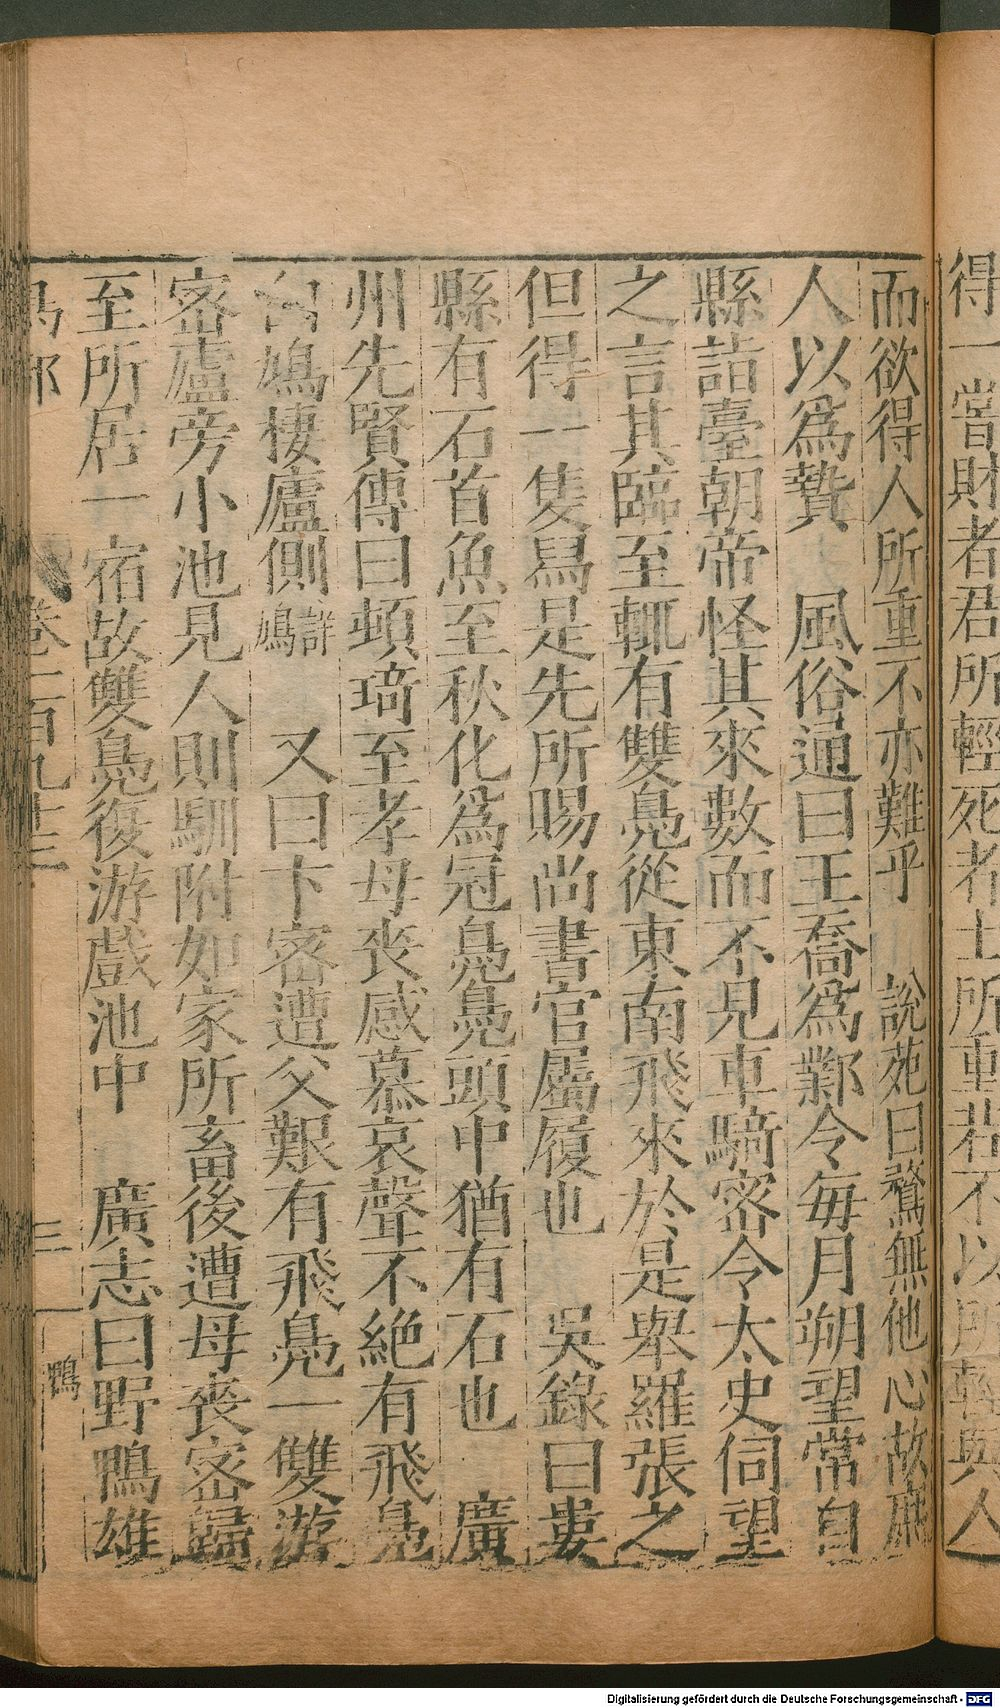 得一當財者君所輕死者士所重君不以所輕與人
而欲得人所重不亦難乎　說苑曰鶩無他心故庶
人以爲贄　風俗通曰王喬爲鄴令每月朔望常自
縣詣臺朝帝怪其來數而不見車騎密令太史伺望
之言其臨至輒有雙鳧從東南飛來於是舉羅張之
但得一隻舄是先所賜尚書官屬履也　吳錄曰婁
縣有石首魚至秋化爲冠鳧鳧頭中猶有石也　廣
州先賢傳曰頓琦至孝母丧感慕哀聲不絶有飛鳧
白鳩棲廬側詳鳩　又曰卞密遭父艱有飛鳧一雙游
密廬旁小池見人則馴附如家所畜後遭母丧密歸
至所居一宿故雙鳧復游戲池中　廣志曰野鴨雄
卷二百九十三
三
鴨
Digitalisierung gefördert durch die Deutsche Forschungsgemeinschaft - DFG